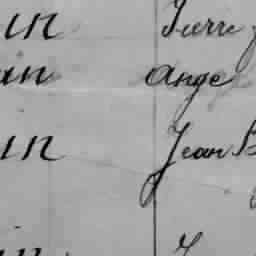 in Pierre
an Ange
in Jean B
in J